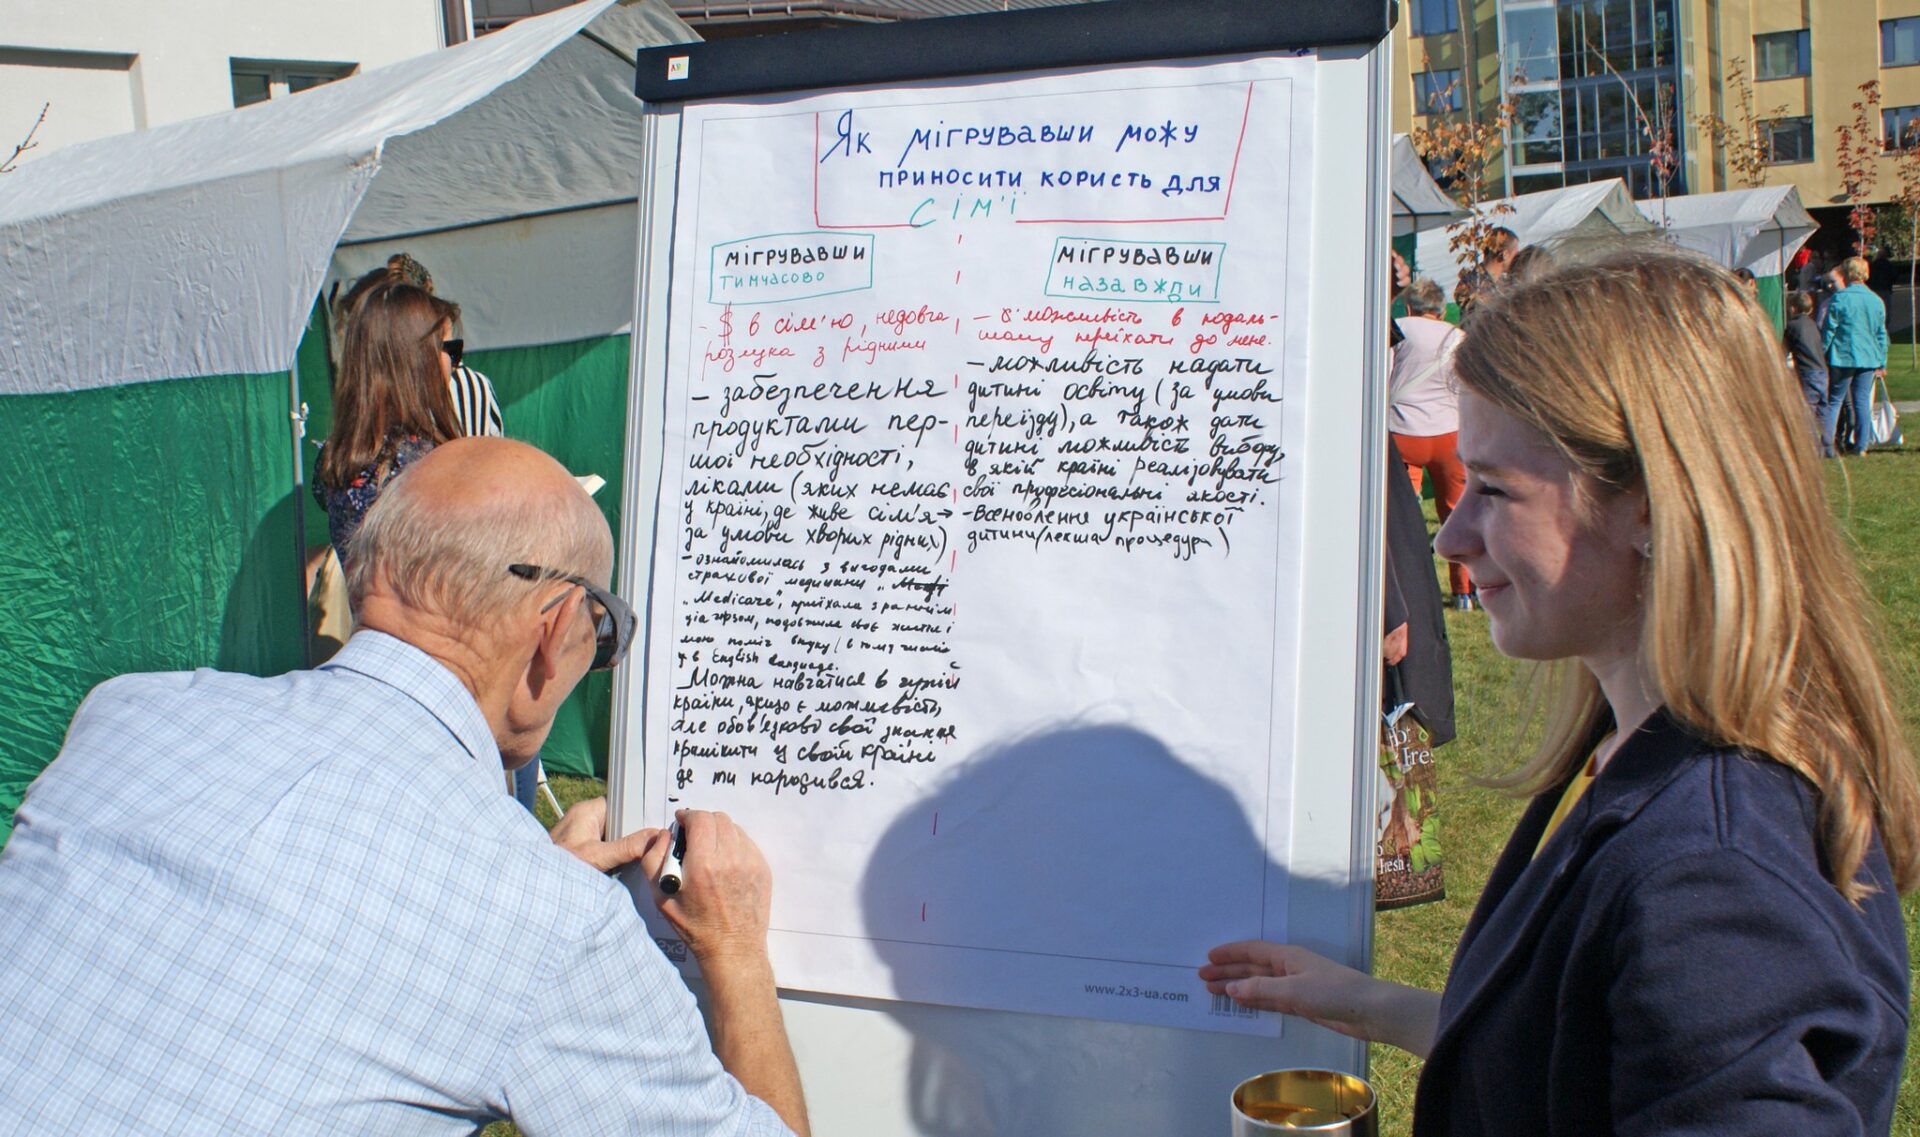 Як мігрувавши можу
приносити користь для
сім'ї
мігрувавши
тимчасово
- $ в сім'ю, недовга
розлука з рідними
- забезпечення
продуктами пер-
шої необхідності,
ліками (яких немає
у країні, де живе сім'я →
за умови хворих рідних)
- ознайомилась з вигодами
страхової медицини "
"Medicare", приїхала з раннім
діагнозом, подовжила своє життя і
мою поміч внуку (в тому числі
в English language.
Можна навчатися в
країни, якщо є можливість,
але обов'язково свої знання
у своїй країні
де ти народився.
-
мігрувавши
назавжди
- можливість в подаль-
шому переїхати до мене.
- можливість надати
дитині освіту (за умови
переїзду), а також дати
дитині можливість вибору,
в якій країні реалізовувати
свої професіональні якості.
- Всеновлення української
дитини (легша процедура)
2x3
www.2x3-ua.com
Fresh